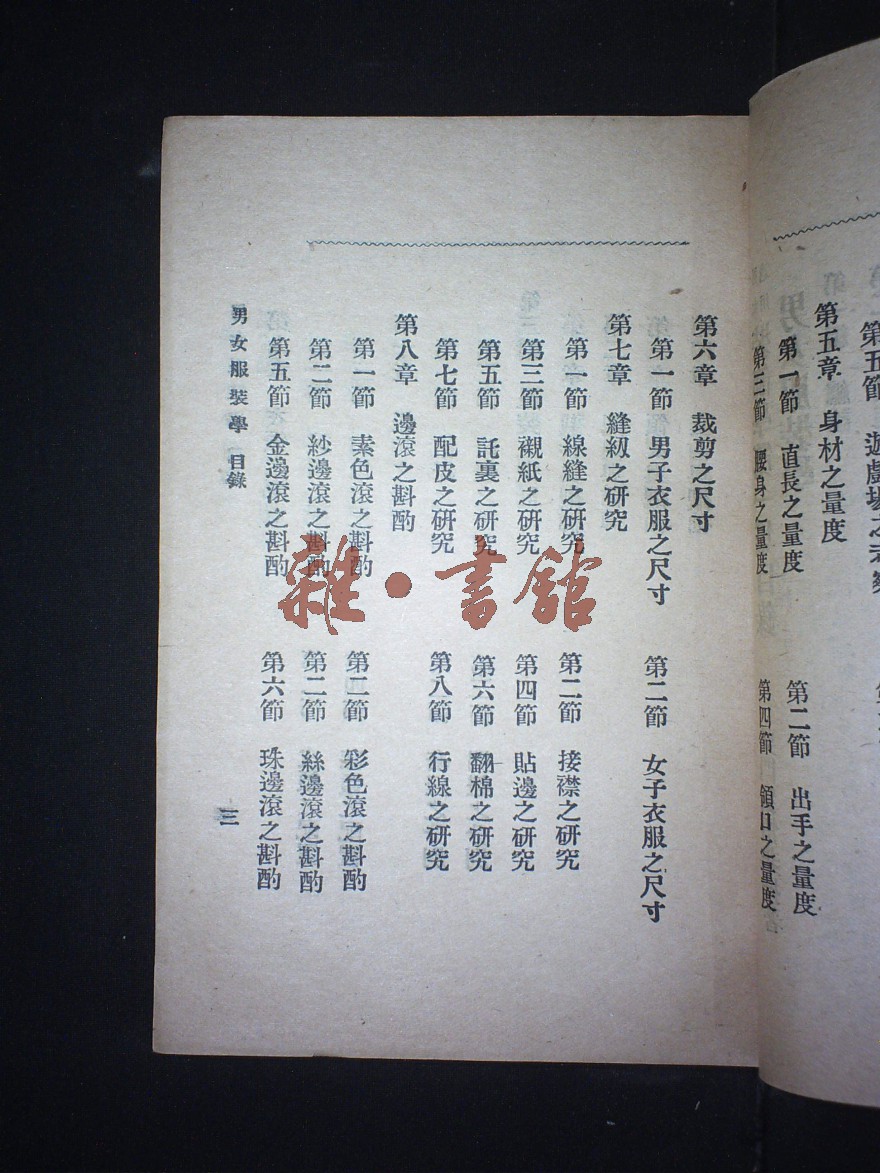 第五節 遊戲場之
第五章 身材之量度
第一節 直長之量度 第二節 出手之量度
第三節 腰身之量度 第四節 領口之量度
第六章 裁剪之尺寸
第一節 男子衣服之尺寸 第二節 女子衣服之尺寸
第七章 縫紉之研究
第一節 線縫之研究 第二節 接襟之研究
第三節 襯紙之研究 第四節 貼邊之研究
第五節 託裏之研究 第六節 翻棉之研究
第七節 配皮之研究 第八節 行線之研究
第八章 邊滾之斟酌
第一節 素色滾之斟酌 第二節 彩色滾之斟酌
第二節 紗邊滾之斟酌 第二節 絲邊滾之斟酌
第五節 金邊滾之斟酌 第六節 珠邊滾之斟酌
男女服裝學 目錄 三
雜·書館